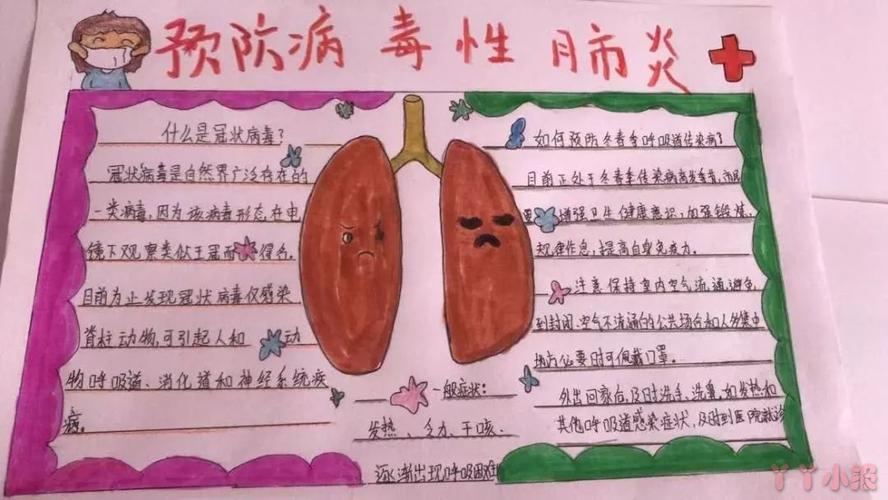 预防病毒性肺炎
什么是冠状病毒?
冠状病毒是自然界广泛存在的
一类病毒,因为该病毒形态在电
镜下观察类似王冠而得名。
目前为止发现冠状病毒仅感染
脊柱动物,可引起人和动
物呼吸道、消化道和神经系统疾
病。
一般症状:
发热、乏力、干咳、
逐渐出现呼吸困难
如何预防冬春季呼吸道传染病?
目前正处于冬春季传染病高发季节,市民
要增强卫生健康意识,加强锻炼,
规律作息,提高自身免疫力。
注意保持室内空气流通,避免
到封闭、空气不流通的公共场合和人多集中
地方,必要时可佩戴口罩。
外出回家后,及时洗手、洗鼻,如发热和
其他呼吸道感染症状,及时到医院就诊
丫丫小报